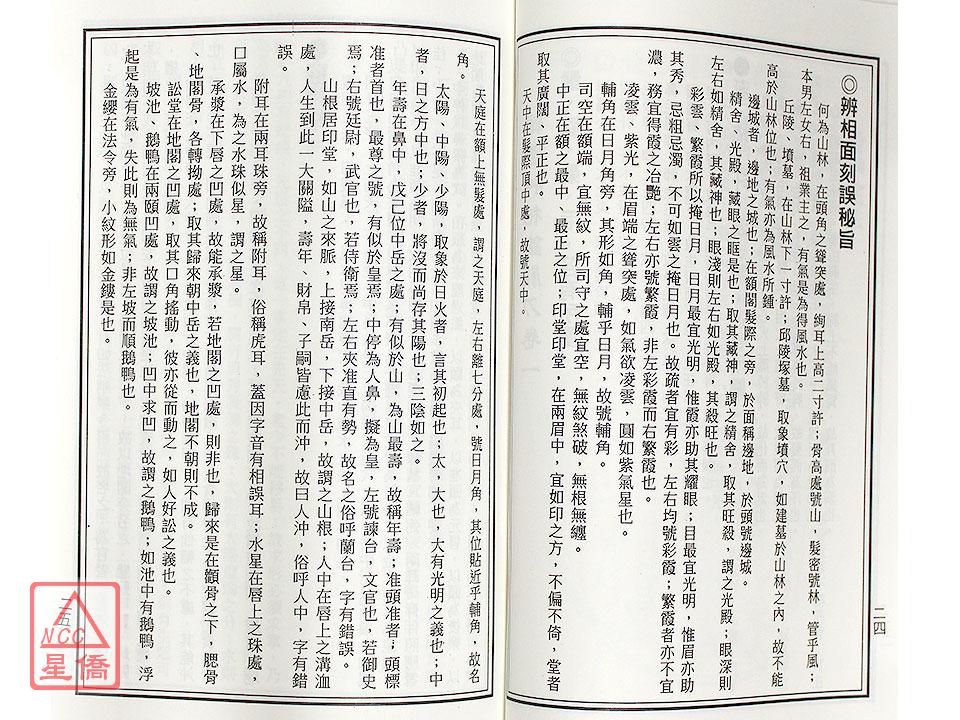 ◎辨相面刻誤秘旨
何為山林，在頭角之聳突處，絢耳上高二寸許；骨高處號山，髮密號林，管乎風；
本男左女右，祖業主之，有氣是為得風水也。
丘陵、墳墓，在山林下一寸許；邱陵塚墓，取象墳穴，如建墓於山林之內，故不能
高於山林位也；有氣亦為風水所鍾。
邊城者，邊地之城也；在額閣髮際之旁，於面稱邊地，於頭號邊城。
精舍、光殿，藏眼之眶是也；取其藏神，謂之精舍，取其旺殺，謂之光殿；眼深則
左右如精舍，其藏神也；眼淺則左右如光殿，其殺旺也。
彩霞、繁霞所以掩日月，日月最宜光明，惟霞亦助其耀眼；目最宜光明，惟眉亦助
其秀，忌祖忌濁，不可如雲之掩日月也。故疏者宜有彩，左右均號彩霞；繁霞者亦不宜
濃，務宜得霞之冶艷；左右亦號繁霞，非左彩霞而右繁霞也。
凌雲、紫光，在眉端之聳突處，如氣欲凌雲，圓如紫氣星也。
輔角在日月角旁，其形如角，輔乎日月，故號輔角。
司空在額端，宜無紋，所司守之處宜空，無紋煞破，無根無纏。
中正在額之最中、最正之位；印堂印堂，在兩眉中，宜如印之方，不偏不倚，堂者
取其廣闊、平正也。
天中在髮際頂中處，故號天中。
二四
天庭在額上無髮處，謂之天庭，左右離七分處，號日月角，其位貼近乎輔角，故名
角。
太陽、中陽、少陽，取象於日火者，言其初起也；太，大也，大有光明之義也；中
者，日之方中也；少者，將沒而尚存其陽也；三陰如之。
年壽在鼻中，戊己位中岳之處；有似於山，為山最壽，故稱年壽；准頭准者；頭標
准者首也，最尊之號，有似於皇焉；中停為人鼻，擬為皇，左號諫台，文官也，若御史
焉；右號廷尉，武官也，若侍衛焉；左右夾准直有勢，故名之俗呼蘭台，字有錯誤。
山根居印堂，如山之來脈，上接南岳，下接中岳，故謂之山根；人中在唇上之溝洫
處，人生到此一大關隘，壽年、財帛、子嗣皆慮此而沖，故曰人沖，俗呼人中，字有錯
誤。
附耳在兩耳珠旁，故稱附耳，俗稱虎耳，蓋因字音有相誤耳；水星在唇上之珠處，
口屬水，為之水珠似星，謂之星。
承漿在下唇之凹處，故能承漿，若地閣之凹處，則非也，歸來是在顴骨之下，腮骨
、地閣骨，各轉拗處；取其歸來朝中岳之義也，地閣不朝則不成。
訟堂在地閣之凹處，取其口角搖動，彼亦從而動之，如人好訟之義也。
坡池、鵝鴨在兩頤凹處，故謂之坡池；凹中求凹，故謂之鵝鴨；如池中有鵝鴨，浮
起是為有氣，失此則為無氣；非左坡而順鵝鴨也。
金縷在法令旁，小紋形如金鏤是也。
二五
NCC
星僑